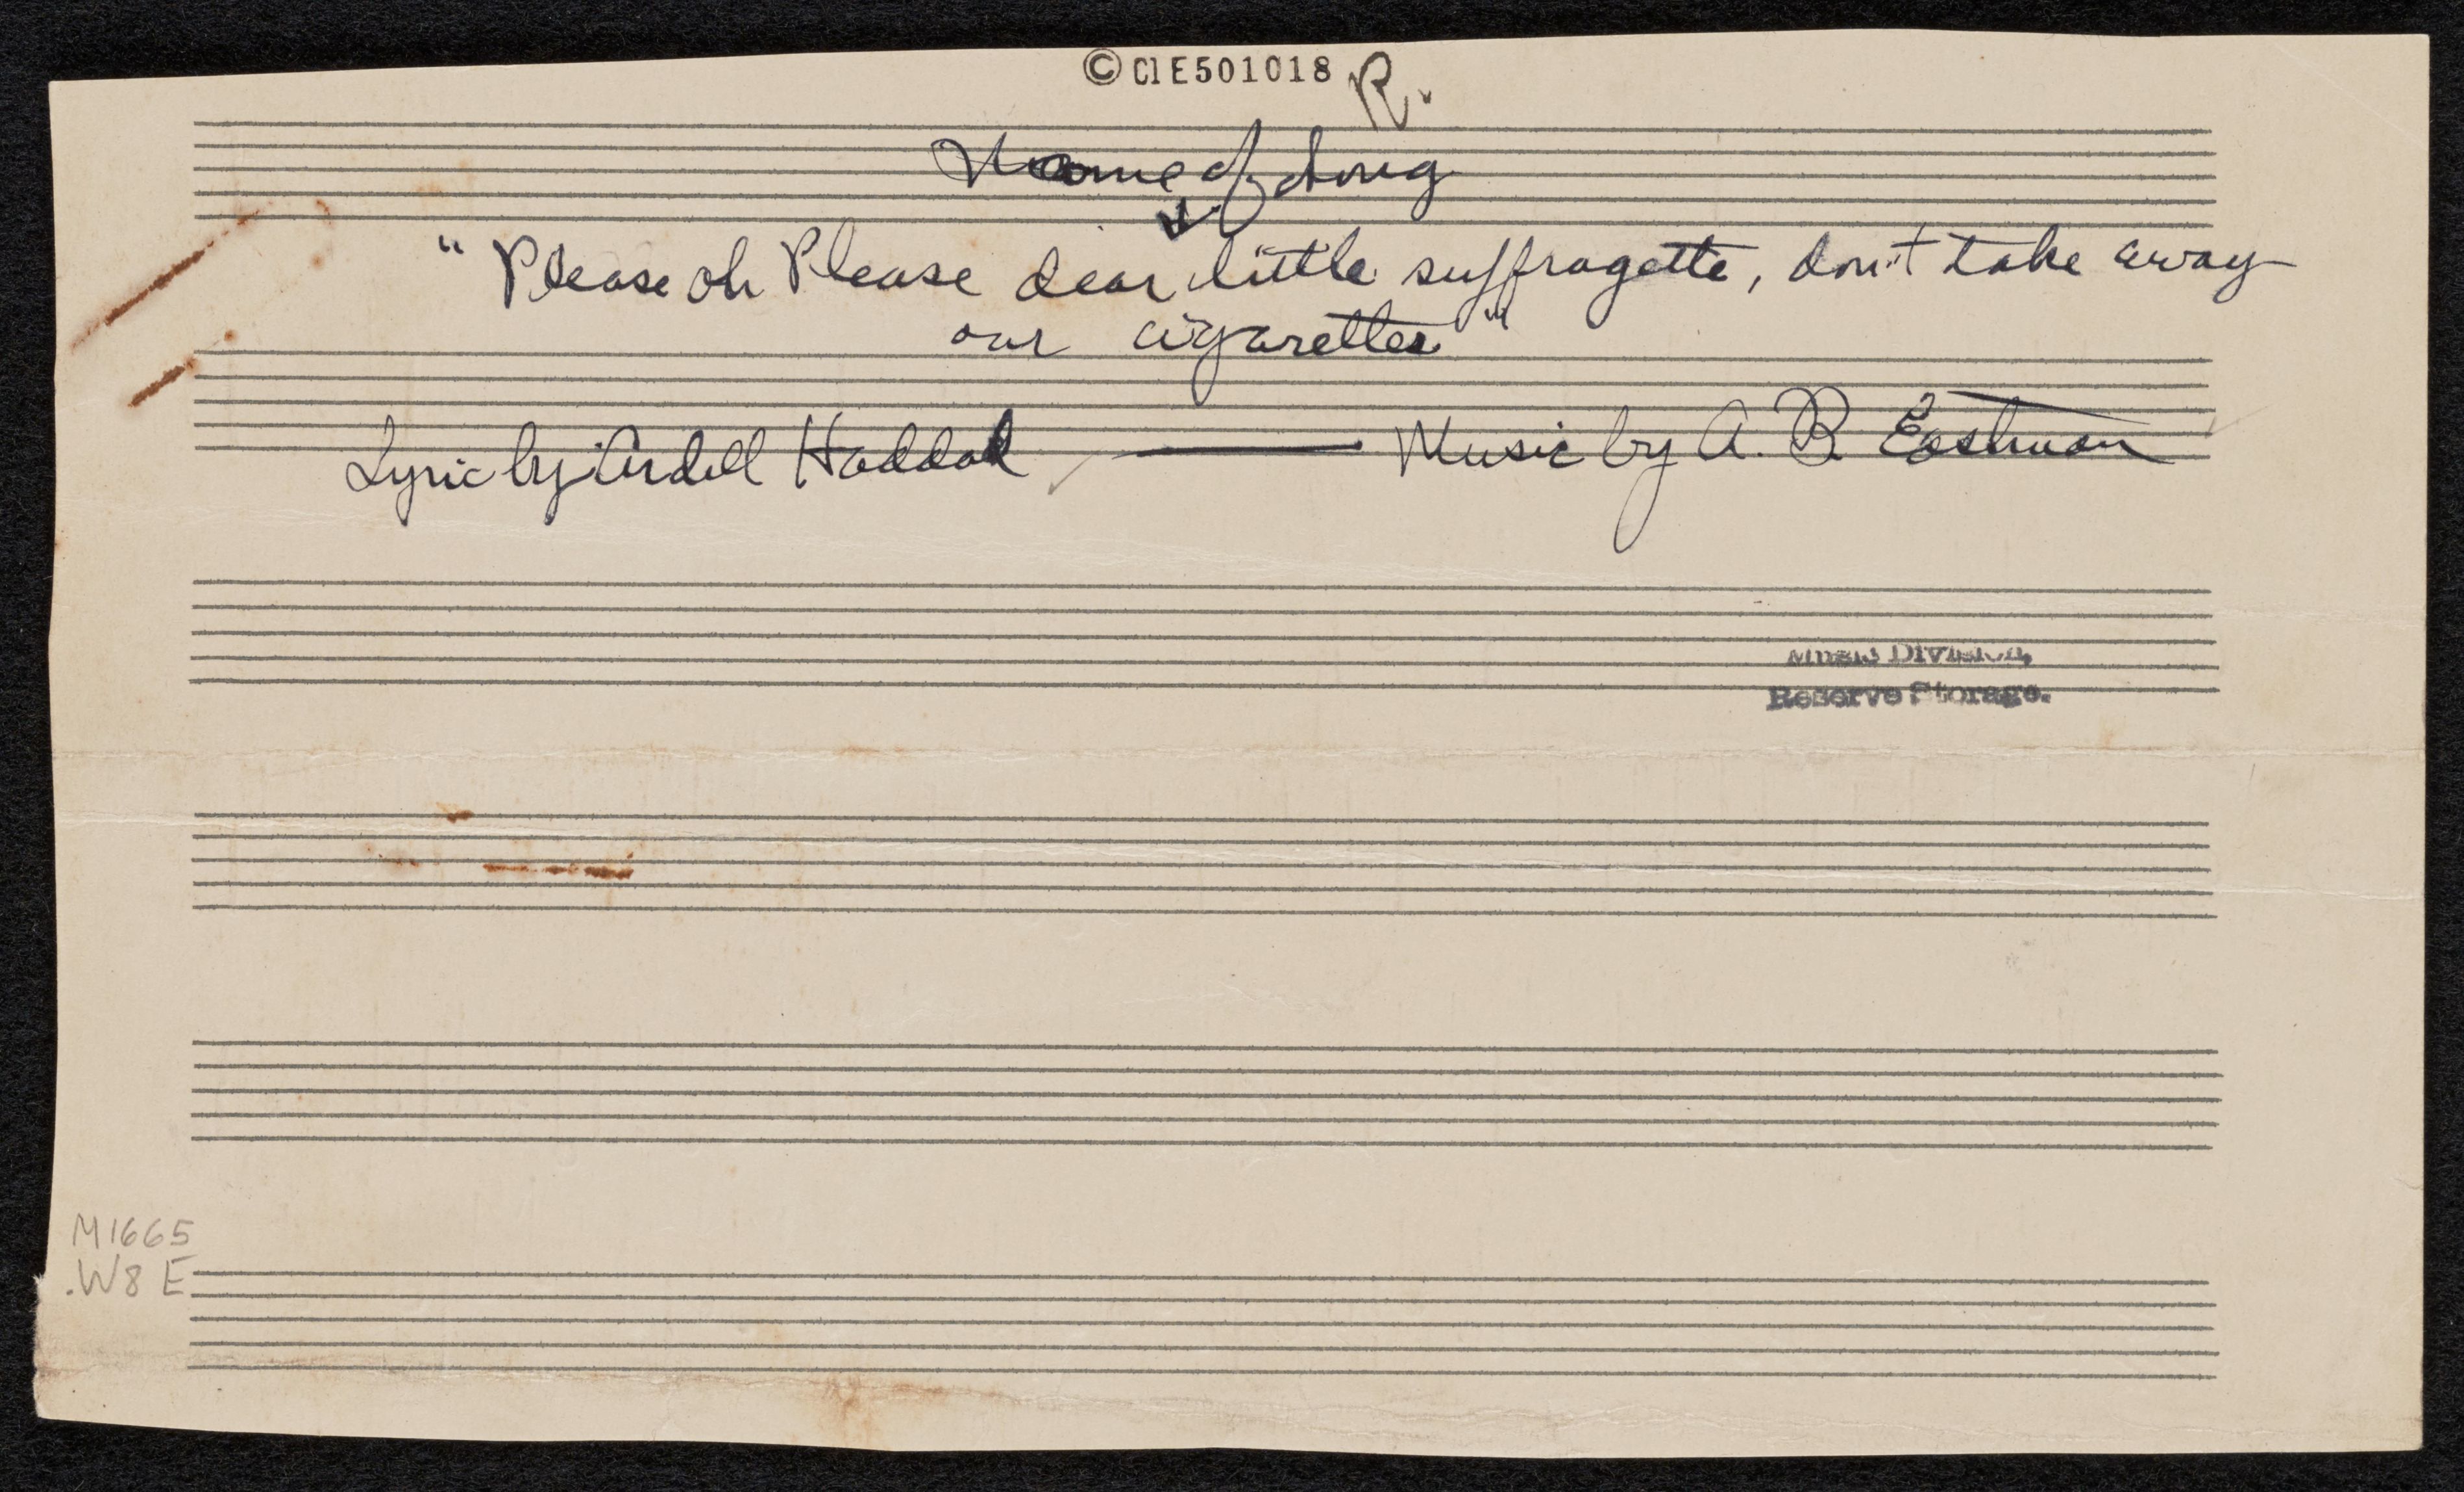 © C1 E501018 R.
Name of Song
"Please oh Please dear little suffragette, don't take away
our cigarettes"
Lyric by Ardell Haddad — Music by A. B. Eastman
Music Division,
Reserve Storage.
M1665
.W8 E